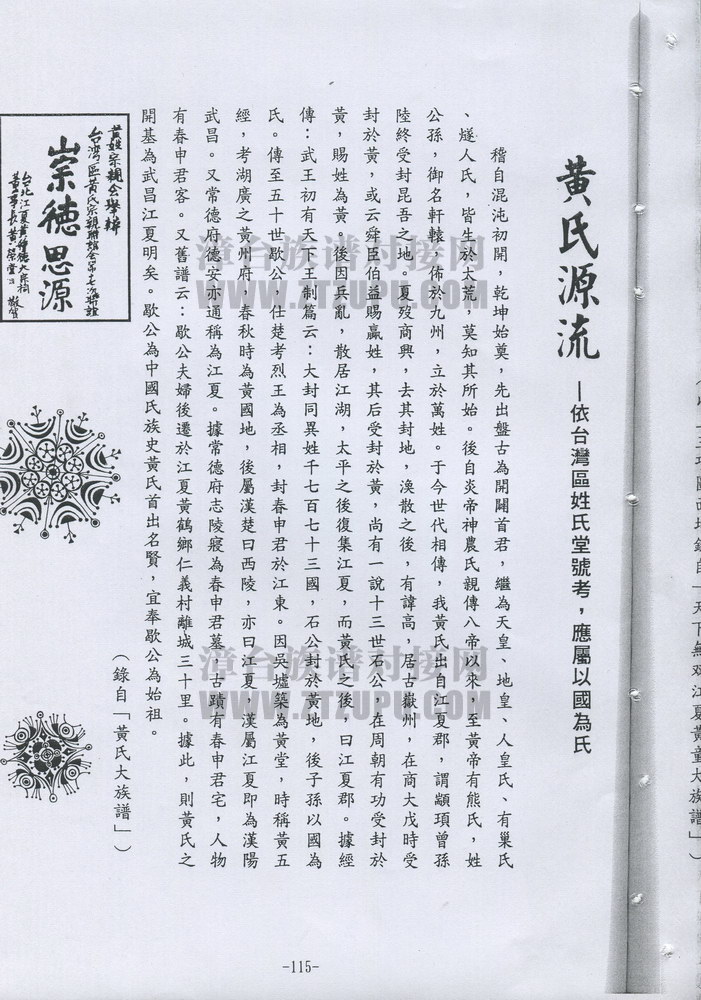 黃氏源流
—依台灣區姓氏堂號考，應屬以國為氏
稽自混沌初開，乾坤始奠，先出盤古為開闢首君，繼為天皇、地皇、人皇氏、有巢氏
、燧人氏，皆生於大荒，莫知其所始。後自炎帝神農氏親傳八帝以來，至黃帝有熊氏，姓
公孫，御名軒轅，佈於九州，立於萬姓。于今世代相傳，我黃氏出自江夏郡，謂顓頊曾孫
陸終受封昆吾之地。夏歿商興，去其封地，渙散之後，有諱高，居古嶽州，在商大戊時受
封於黃，或云舜臣伯益賜贏姓，其后受封於黃，尚有一說十三世石公，在周朝有功受封於
黃，賜姓為黃。後因兵亂，散居江湖，太平之後復集江夏，而黃氏之後，曰江夏郡。據經
傳：武王初有天下王制篇云：大封同異姓千七百七十三國，石公封於黃地，後子孫以國為
氏。傳至五十世歇公，仕楚考烈王為丞相，封春申君於江東。因吳墟築為黃堂，時稱黃五
經，考湖廣之黃州府，春秋時為黃國地，後屬漢楚曰西陵，亦曰江夏，漢屬江夏即為漢陽
武昌。又常德府德安亦通稱為江夏。據常德府志陵寢為春申君墓，古蹟有春申君宅，人物
有春申君客。又舊譜云：歇公夫婦後遷於江夏黃鶴鄉仁義村離城三十里。據此，則黃氏之
開基為武昌江夏明矣。歇公為中國民族史黃氏首出名賢，宜奉歇公為始祖。
（錄自「黃氏大族譜」）
黃姓宗親会舉辦
崇德思源
-115-
漳台族谱对接网
WWW.ZTZUPU.COM
漳台族谱对接网
WWW.ZTZUPU.COM